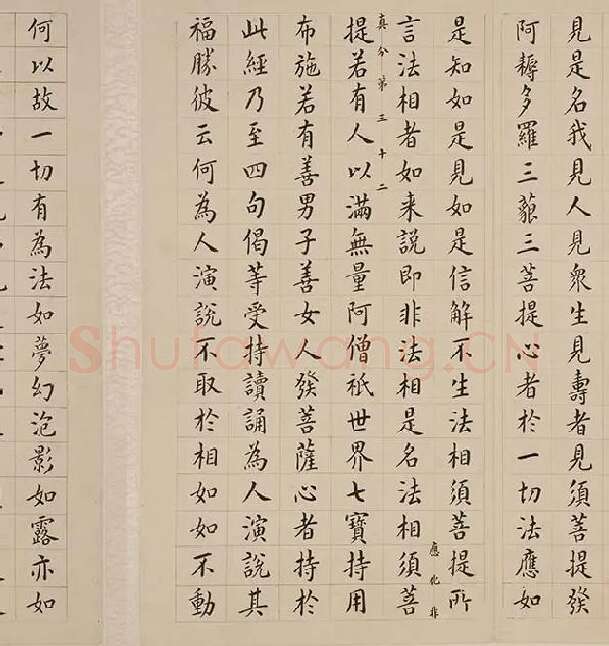 見是名我見人見衆生見壽者見須菩提發
阿耨多羅三藐三菩提心者於一切法應如
是知如是見如是信解不生法相須菩提所
應化非
言法相者如来說即非法相是名法相須菩
真分第三十二
提若有人以滿無量阿僧祇世界七寶持用
布施若有善男子善女人發菩薩心者持於
此經乃至四句偈等受持讀誦為人演說其
福勝彼云何為人演說不取於相如如不動
何以故一切有為法如夢幻泡影如露亦如
Shufawang.CN